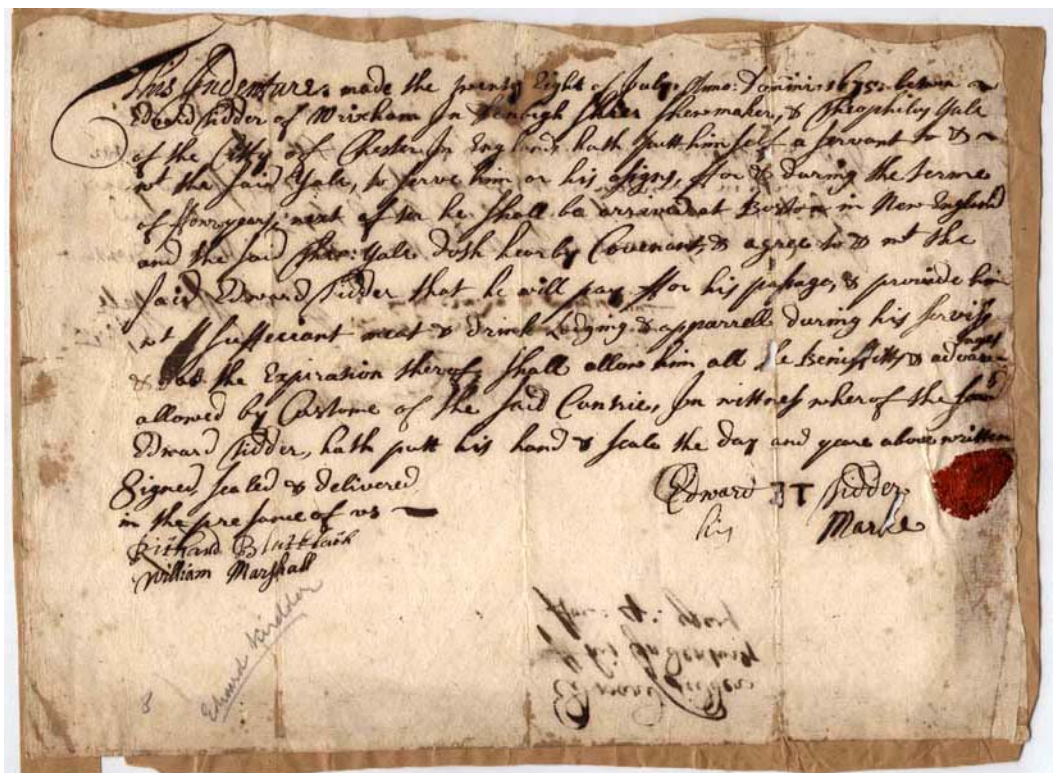 This Indenture, made the twenty Eight of July Anno: Domini: 1675: betwen
Edward Tidder of Wrixham In Denbigh Shier Shoemaker, & Theophilus Yale
of the Citty of Chester In England, hath putt himself a servant to & ~
wt the said Yale, to serve him or his asigns, ffor & during the terme
of ffowr years, next after he shall be arrived at Boston in New England
and the said Theo: Yale doth hearby Covenant, & agree to & wt the
said Edward Tidder that he will pay ffor his passage, & provide him
wt suffeciant meat & drink Lodging & apparrell during his servise
& att the Expiration therof, shall allow him all the Beniffitts & advantages
allowed by Custome of the said Cuntrie, In wittness wherof the said
Edward Tidder, hath putt his hand & seale the day and yeare above written
Signed, sealed & delivered
in the presence of us
Richard
William Marshall
Edward ET Tidder
his Marke
Edward Tidder
his Indentures
for 4: years
Edward Kidder
8